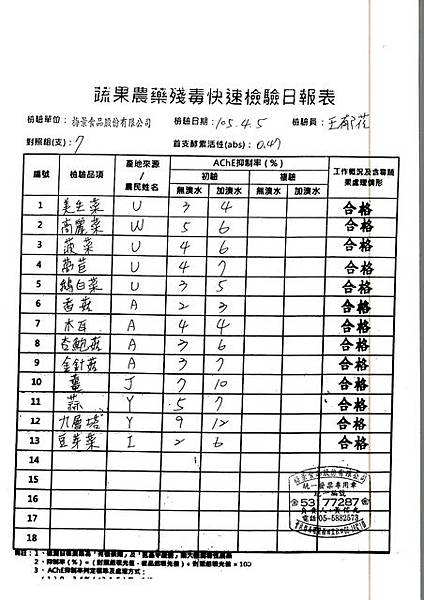 蔬果農藥殘毒快速檢驗日報表
檢驗單位：裕景食品股份有限公司 檢驗日期：105.4.5 檢驗員：
對照組(支)：7 首支酵素活性(abs)：0.47
編號 檢驗品項 產地來源/農民姓名 AChE抑制率(%) 工作概況及含毒蔬果處理情形
初驗 複驗
無漬水 加漬水 無漬水 加漬水
1 美生菜 U 3 4 合格
2 高麗菜 W 5 6 合格
3 菠菜 U 4 6 合格
4 萵苣 U 4 7 合格
5 鵝白菜 U 3 5 合格
6 香菇 A 2 3 合格
7 木耳 A 4 4 合格
8 杏鮑菇 A 3 6 合格
9 金針菇 A 3 7 合格
10 薑 J 7 10 合格
11 蒜 Y 5 7 合格
12 九層塔 Y 9 12 合格
13 豆芽菜 I 2 6 合格
14
15
16
17
18
股份有限公司
統一發票專用章
統一編號
53 77287
負責人：
電話05-5882573
2、抑制率(%)=(對照組吸光值－樣品組吸光值)÷對照組吸光值×100
3、AChE抑制率判定標準及處理方式：